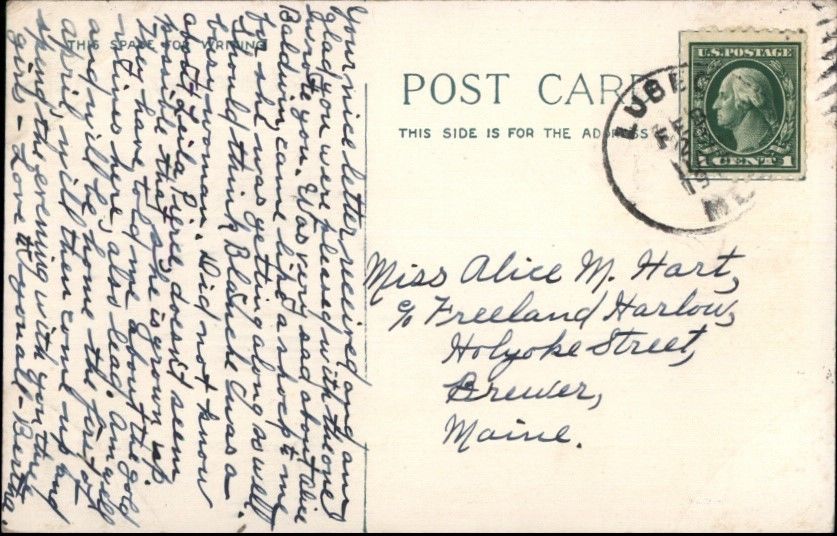 THIS SPACE FOR WRITING
Your nice letter received and am
glad you were pleased with the one
I wrote you. Was very sad about Alice
Baldwin, came like a shock to me
for she was getting along so well
I should think Blanche was a
busy woman. Did not know
about Leila, doesn't seem
possible that she is grown up
They have told me about the gold
mines here, also lead. Am well
and will be home the first of
April, will then come up and
spend the evening with you three
girls - Love to you all - Bertha.
POST CARD
THIS SIDE IS FOR THE ADDRESS
U.S. POSTAGE
1 CENT 1
LUBEC
FEB
ME
Miss Alice M. Hart,
c/o Freeland Harlow,
Holyoke Street,
Brewer,
Maine.